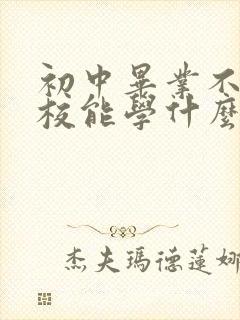 初中畢業不
校能學什麼
杰夫瑪德蓮娜